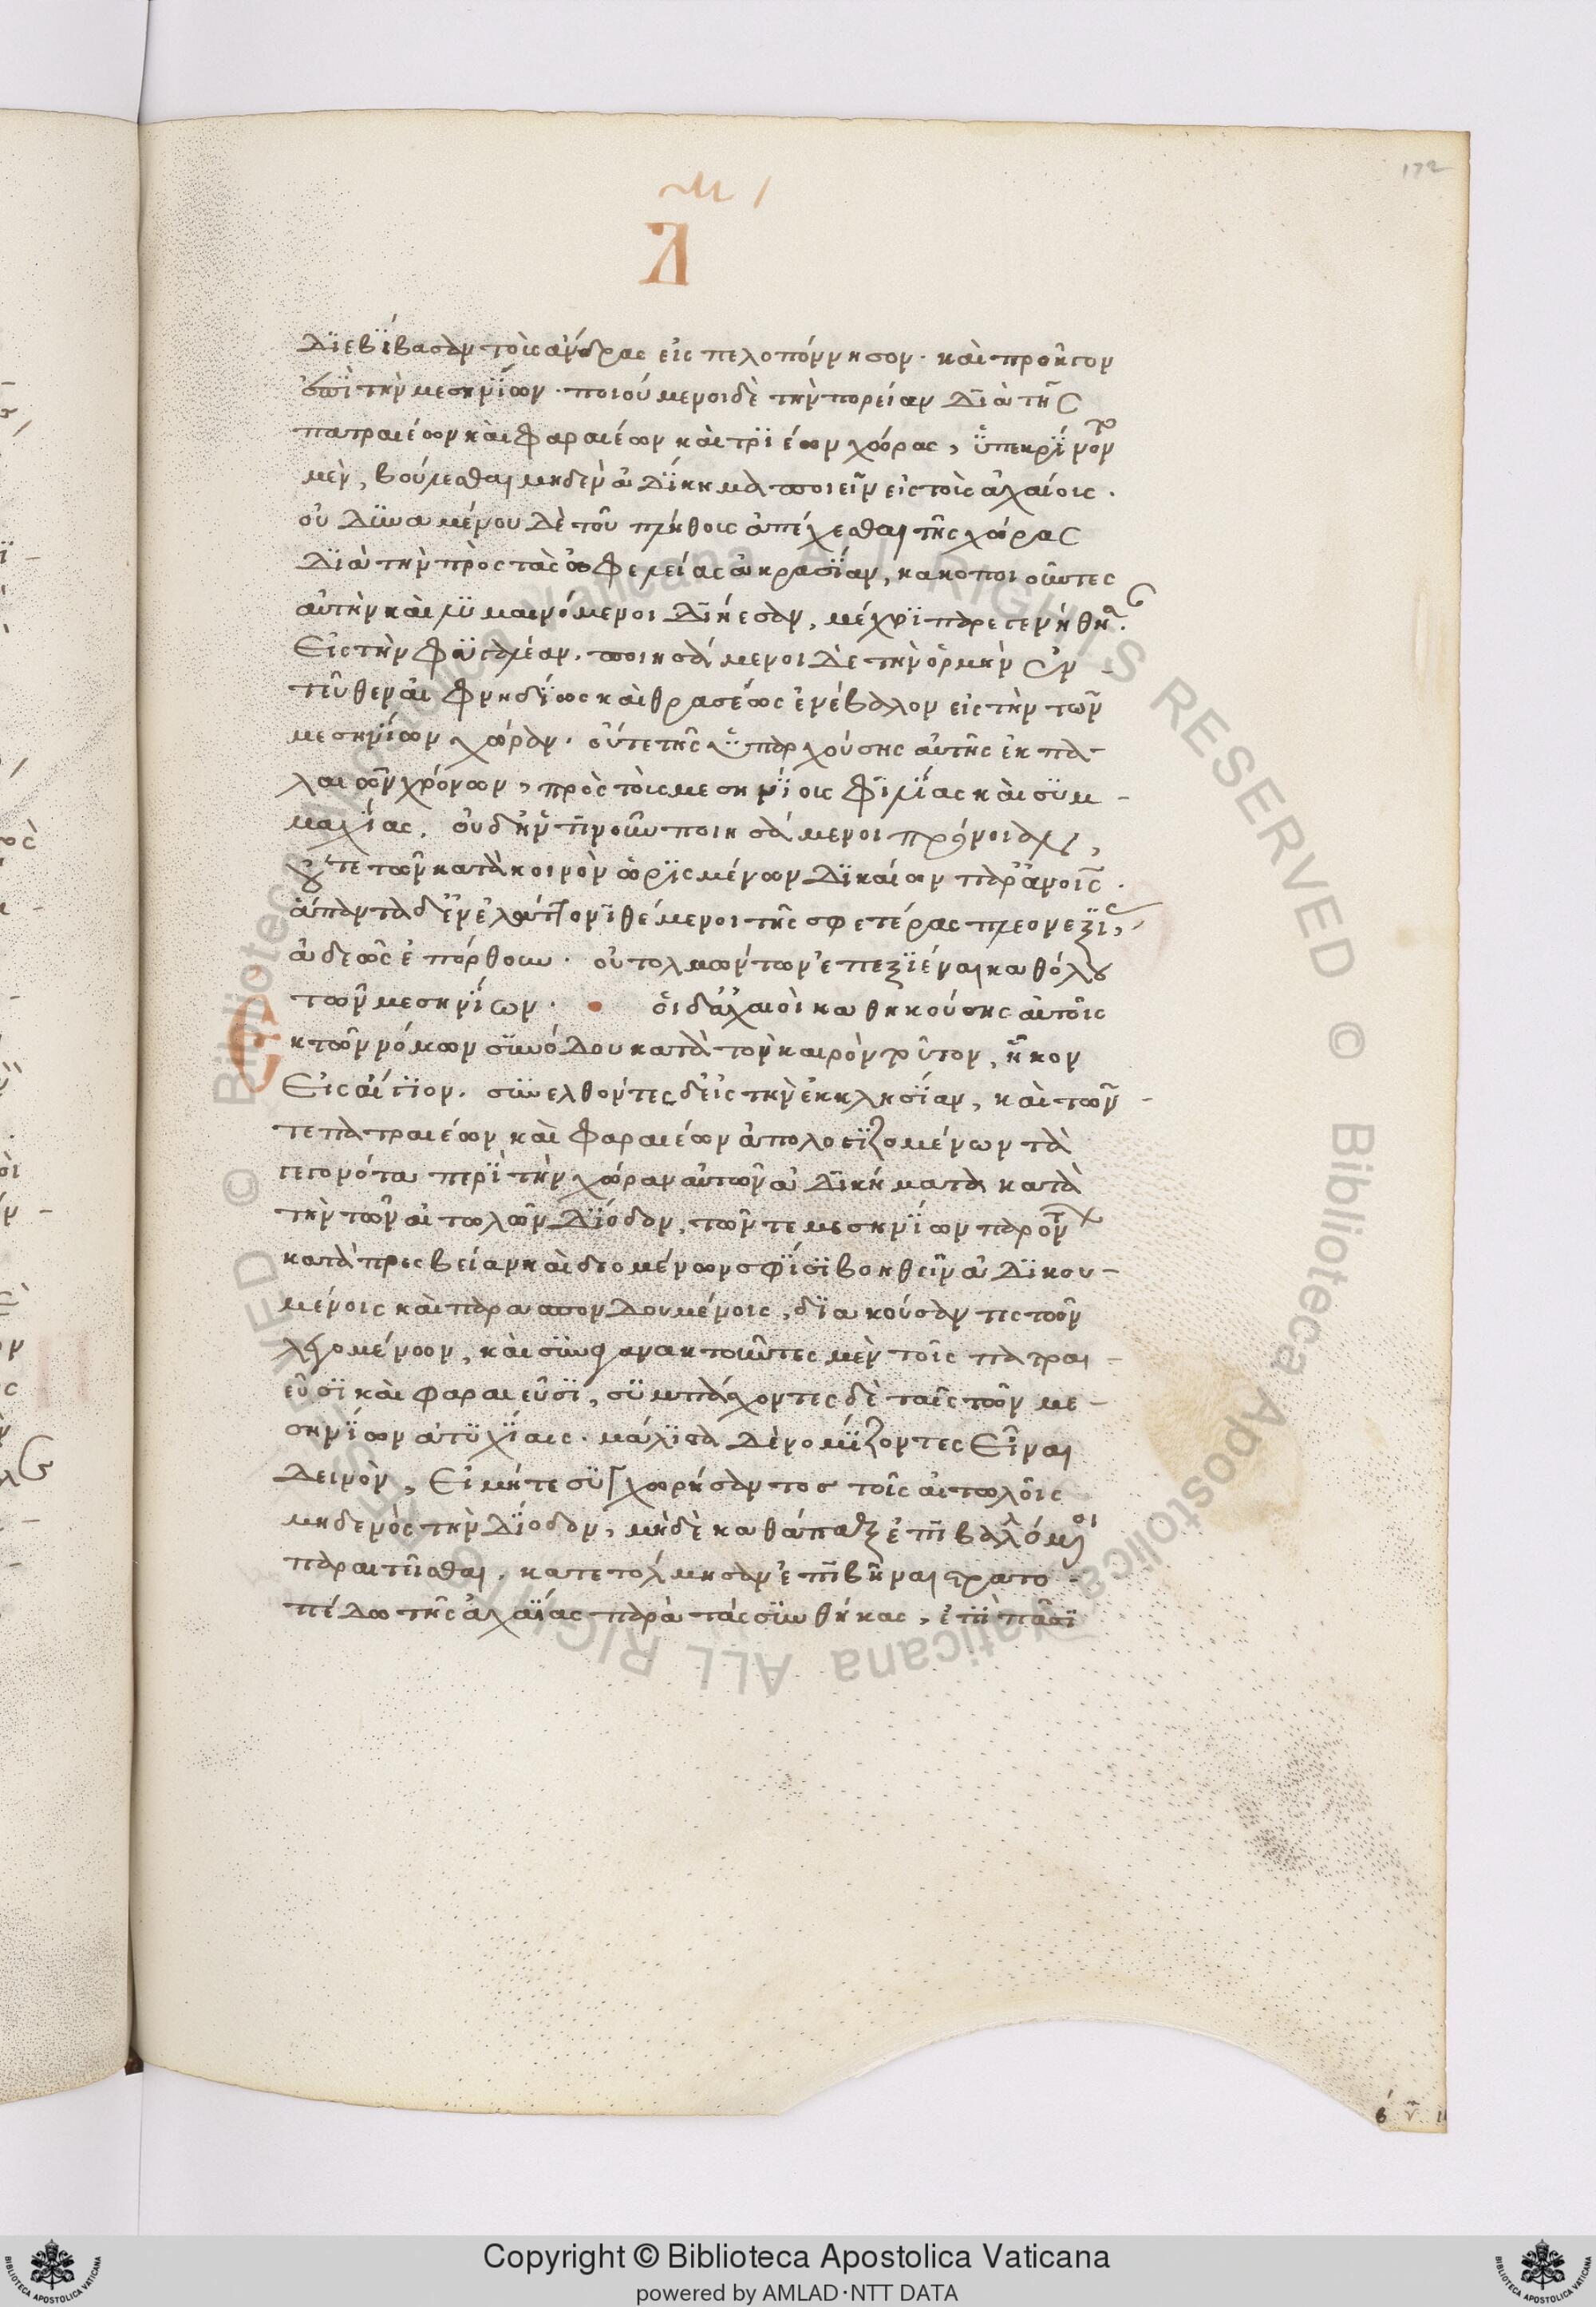 172
Λ
διεβίβασαν τοὺς ἄνδρας εἰς πελοπόννησον. καὶ προῆγον
ἐπὶ τὴν μεσηνίων. ποιούμενοι δὲ τὴν πορείαν διὰ τῆς
πατραιέων καὶ φαραιέων καὶ τριέων χώρας, ὑπεκρίνοντο
μὲν, βούλεσθαι μηδὲν ἀδίκημα ποιεῖν εἰς τοὺς ἀχαίους.
οὐ δυναμένου δὲ τοῦ πλήθους ἀπέχεσθαι τῆς χώρας
διὰ τὴν πρὸς τὰς ὠφελείας ἀκρασίαν, κακοποιοῦντες
αὐτὴν καὶ λυμαινόμενοι διήεσαν, μέχρι παρεγενήθησαν.
εἰς τὴν φυγαλέαν. ποιησάμενοι δὲ τὴν ὁρμὴν ἐν
τεῦθεν αἰφνηδίως καὶ θρασέως ἐνέβαλον εἰς τὴν τῶν
μεσηνίων χώραν. οὔτε τῆς ὑπαρχούσης αὐτῆς ἐκ πα
λαιῶν χρόνων, πρὸς τοὺς μεσηνίους φιλίας καὶ συμ
μαχίας. οὐδ' ἥν τιν' οὖν ποιησάμενοι πρόνοιαν,
οὔτε τῶν κατὰ κοινὸν ὡρισμένων δικαίων παρ' ἀνοις.
ἅπαντα δ' ἐν ἐλάττονι θέμενοι τῆς σφετέρας πλεονεξίας,
ἀδεῶς ἐπόρθουν. οὐ τολμώντων ἐπεξιέναι καθόλου
τῶν μεσηνίων. οἱ δ' ἀχαιοὶ καθηκούσης αὐτοῖς
ἐκ τῶν νόμων συνόδου κατὰ τὸν καιρὸν τοῦτον, ἧκον
εἰς αἴγιον. συνελθόντες δ' εἰς τὴν ἐκκλησίαν, καὶ τῶν
τε πατραιέων καὶ φαραιέων ἀπολογιζομένων τὰ
γεγονότα περὶ τὴν χώραν αὐτῶν ἀδικήματα κατὰ
τὴν τῶν αἰτωλῶν δίοδον, τῶν τε μεσηνίων παρόντων
κατὰ πρεσβείαν καὶ δεομένων σφίσι βοηθεῖν ἀδικου
μένοις καὶ παρασπονδουμένοις, διακούσαντες τῶν
λεγομένων, καὶ συναγανακτοῦντες μὲν τοῖς πατραι
εῦσι καὶ φαραιεῦσι, συμπάσχοντες δὲ ταῖς τῶν με
σηνίων ἀτυχίαις. μάλιστα δὲ νομίζοντες εἶναι
δεινὸν, εἰ μήτε συγχωρήσαντος τοῖς αἰτωλοῖς
μηδενὸς τὴν δίοδον, μηδὲ καθάπαξ ἐπιβαλόμενοι
παραιτεῖσθαι. κατετόλμησαν ἐπιβῆναι στρατο
πέδω τῆς ἀχαΐας παρὰ τὰς συνθήκας, ἐπὶ πᾶσι
Biblioteca Apostolica Vaticana ALL RIGHTS RESERVED © Biblioteca Apostolica Vaticana ALL RIGHTS RESERVED ©
Copyright © Biblioteca Apostolica Vaticana
powered by AMLAD·NTT DATA